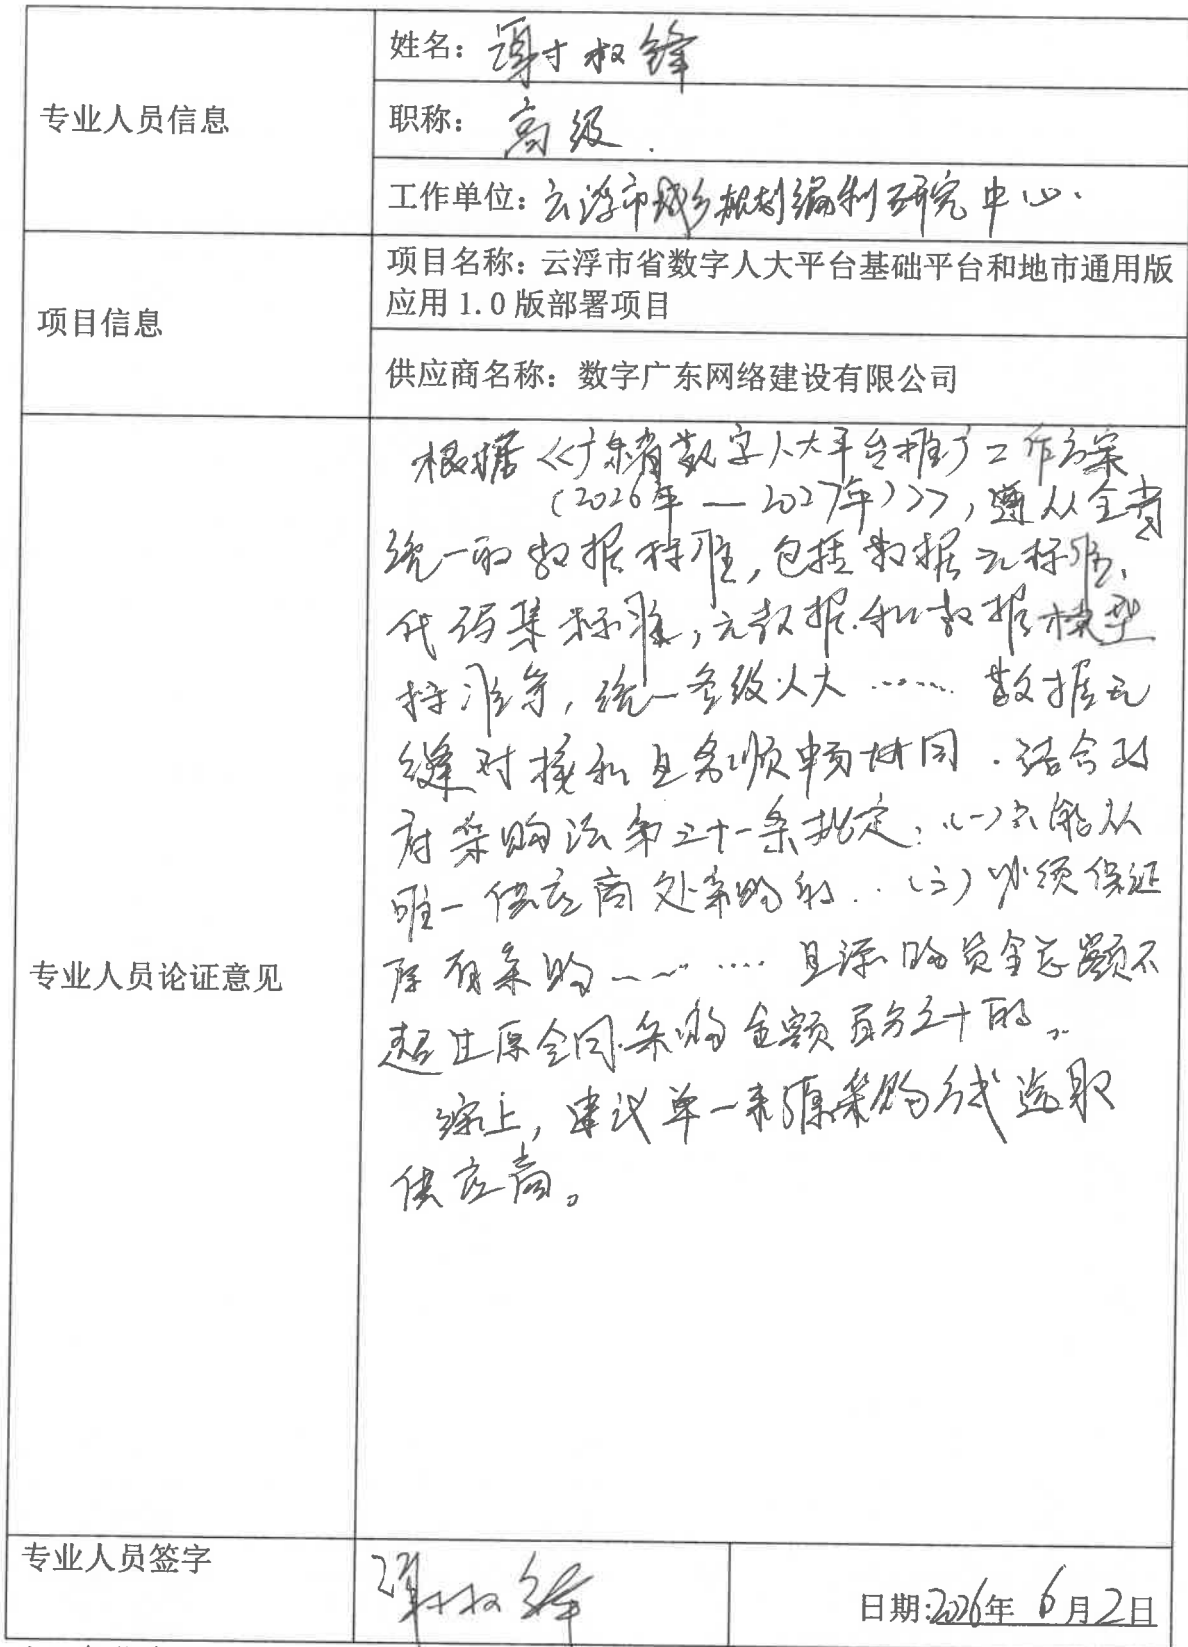 专业人员信息
姓名：谢权锋
职称：高级.
工作单位：云浮市城乡规划编制研究中心.
项目信息
项目名称：云浮市省数字人大平台基础平台和地市通用版
应用1.0版部署项目
供应商名称：数字广东网络建设有限公司
专业人员论证意见
根据《广东省数字人大平台推广工作方案
（2026年—2027年）》，遵从全省
统一的数据标准，包括数据元标准、
代码集标准，元数据和数据模型
标准等，统一各级人大……数据无
缝对接和业务顺畅协同.结合政
府采购法第三十一条规定：（一）只能从
唯一供应商处采购的.（三）必须保证
原有采购……且添购资金总额不
超过原合同采购金额百分之十的。
综上，建议单一来源采购方式选取
供应商。
专业人员签字
谢权锋
日期:2026年6月2日